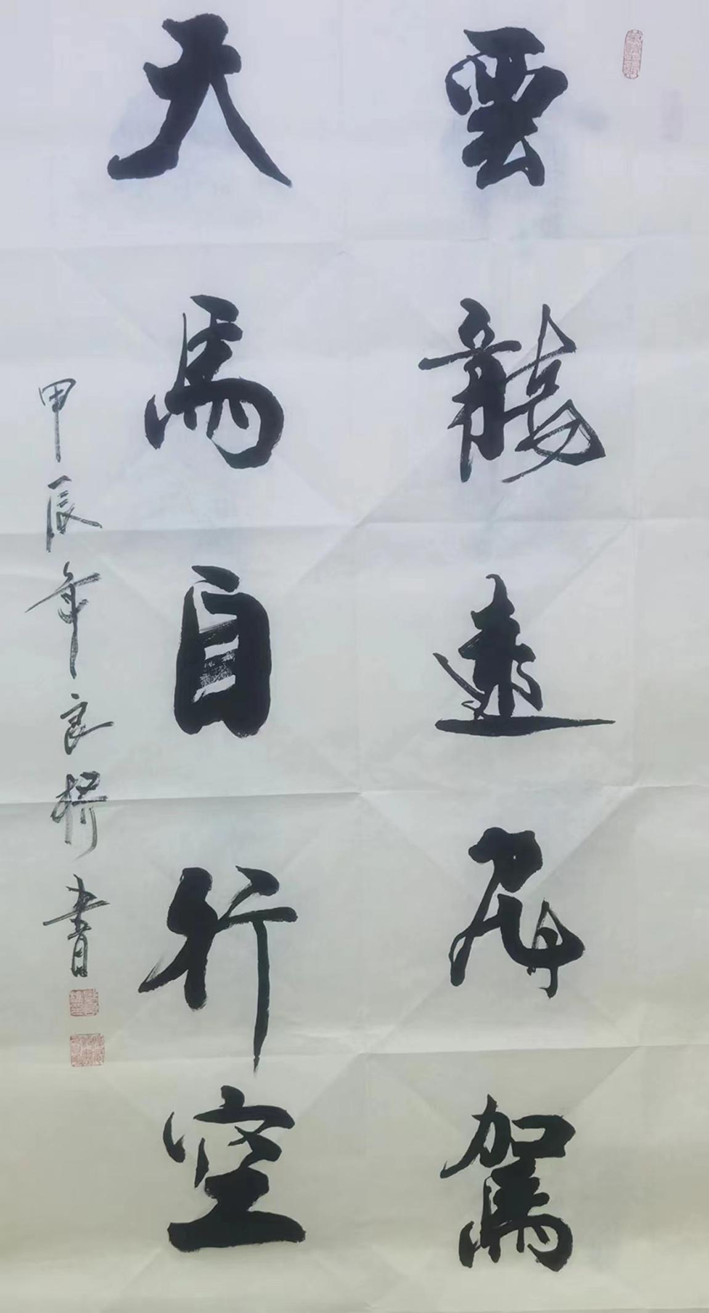 雲龍遠飛駕
天馬自行空
甲辰年良桥書